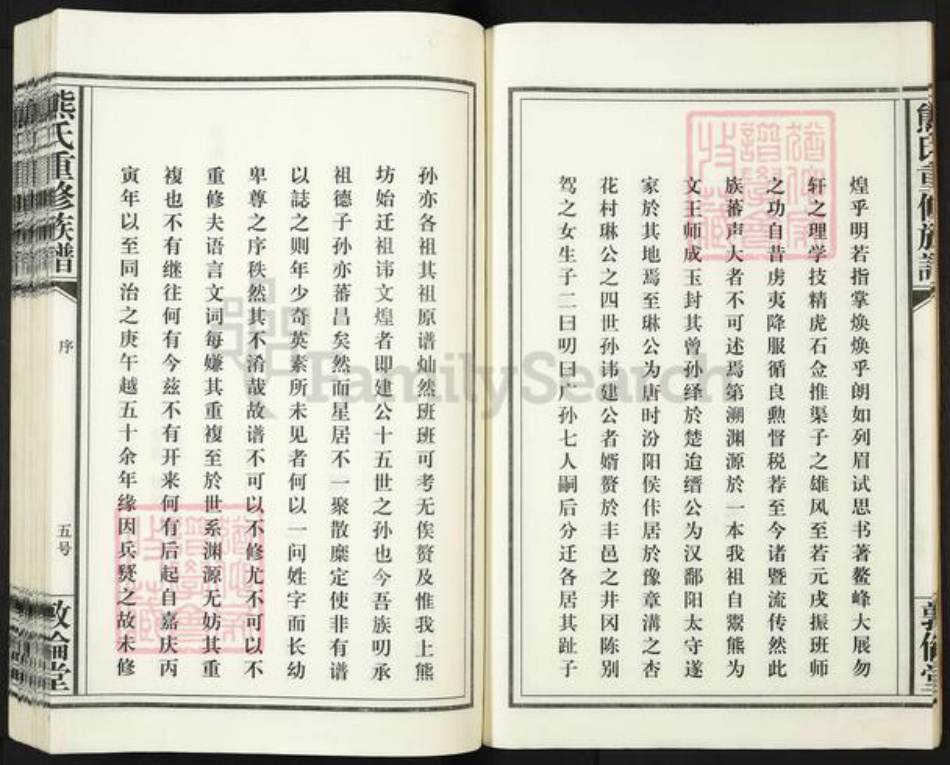 熊氏重修族谱
煌乎明若指掌焕焕乎朗如列眉试思书著鳌峰大展勿
轩之理学技精虎石佥推渠子之雄风至若元戍振班师
之功自昔虏夷降服循良勲督税荐至今诸暨流传然此
族蕃声大者不可述焉第溯渊源於一本我祖自鬻熊为
文王师成玉封其曾孙绎於楚迨缙公为汉鄱阳太守遂
家於其地焉至琳公为唐时汾阳侯佧居於豫章溝之杏
花村琳公之四世孙讳建公者婿赘於丰邑之井冈陈别
驾之女生子二曰明曰广孙七人嗣后分迁各居其趾子
敦倫堂
孙亦各祖其祖原谱灿然班班可考无俟赘及惟我上熊
坊始迁祖讳文煌者即建公十五世之孙也今吾族明承
祖德子孙亦蕃昌矣然而星居不一聚散靡定使非有谱
以誌之则年少奇英素所未见者何以一问姓字而长幼
卑尊之序秩然其不淆哉故谱不可以不修尤不可以不
重修夫语言文词每嫌其重複至於世系渊源无妨其重
複也不有继往何有今兹不有开来何有后起自嘉庆丙
寅年以至同治之庚午越五十余年缘因兵燹之故未修
熊氏重修族谱
序
五号
敦倫堂
FamilySearch